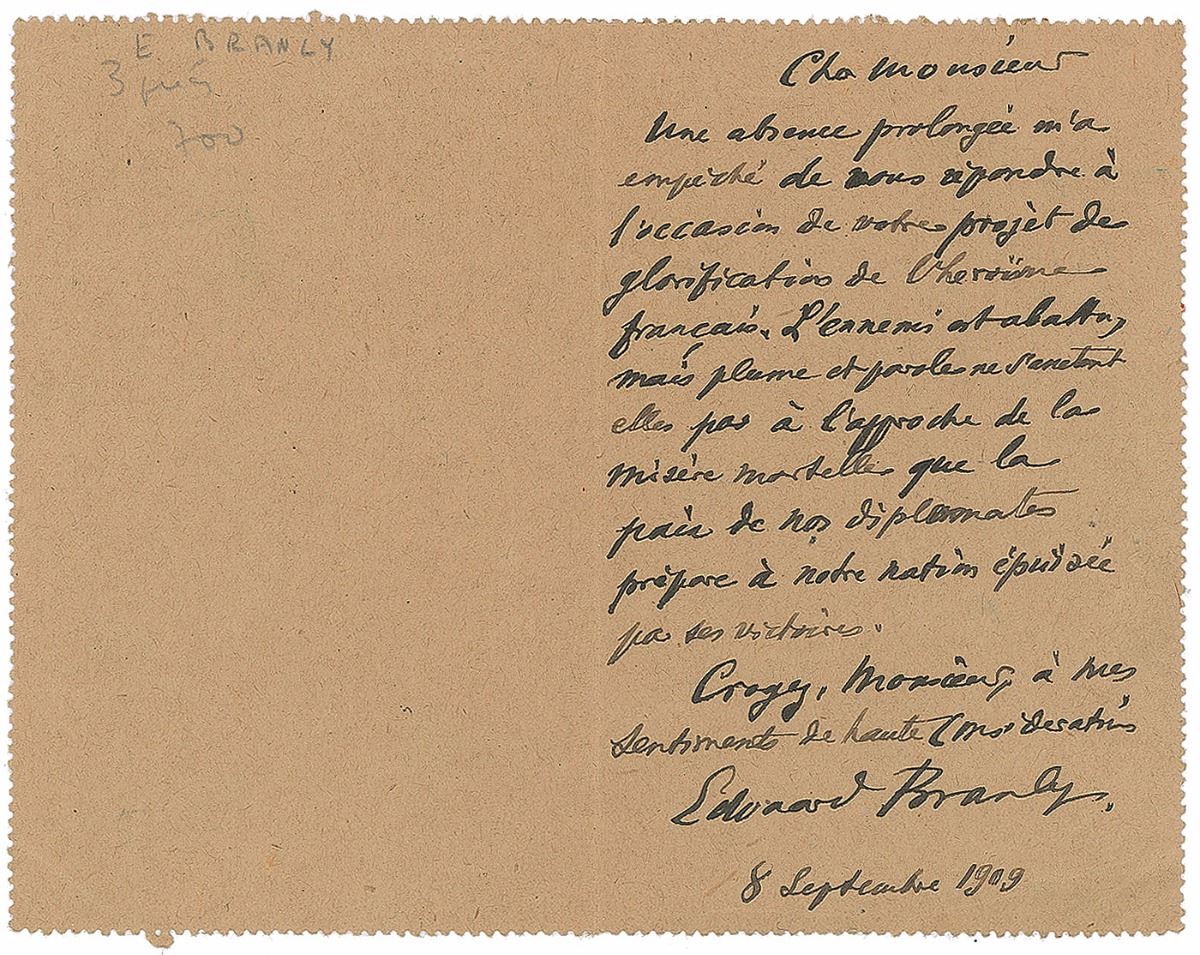 E BRANLY
3
700
Cher Monsieur
Une absence prolongée m'a
empêché de vous répondre à
l'occasion de votre projet de
glorification de l'heroïsme
français. L'ennemi est abattu,
mais plume et parole ne s'arretent
elles pas à l'approche de la
misère mortelle que la
paix de nos diplomates
prépare à notre nation épuisée
par ses victoires.
Croyez, Monsieur, à mes
sentiments de haute Consideration
Edouard Branly.
8 Septembre 1909